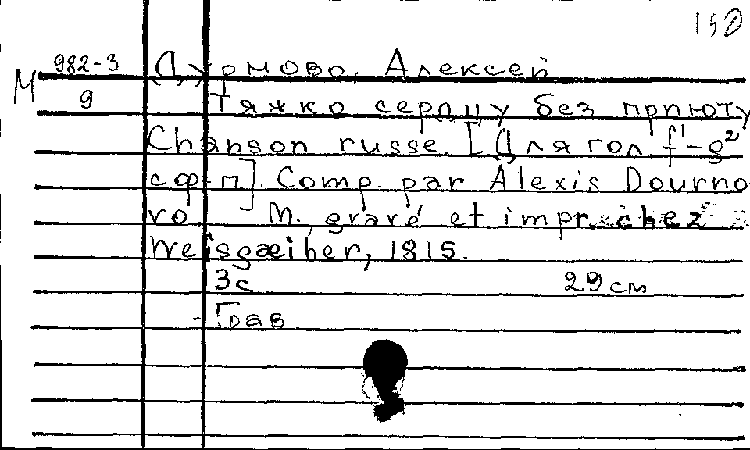 150
М 982-3
9
Дурново, Алексей
Тяжко сердцу без прпюту
Chanson russe [Для гол f'-g²
с ф-п] Comp. par Alexis Dourno
vo. M., gravé et impr. chez
Weisgæiber, 1815.
3 с 29 см
Грав